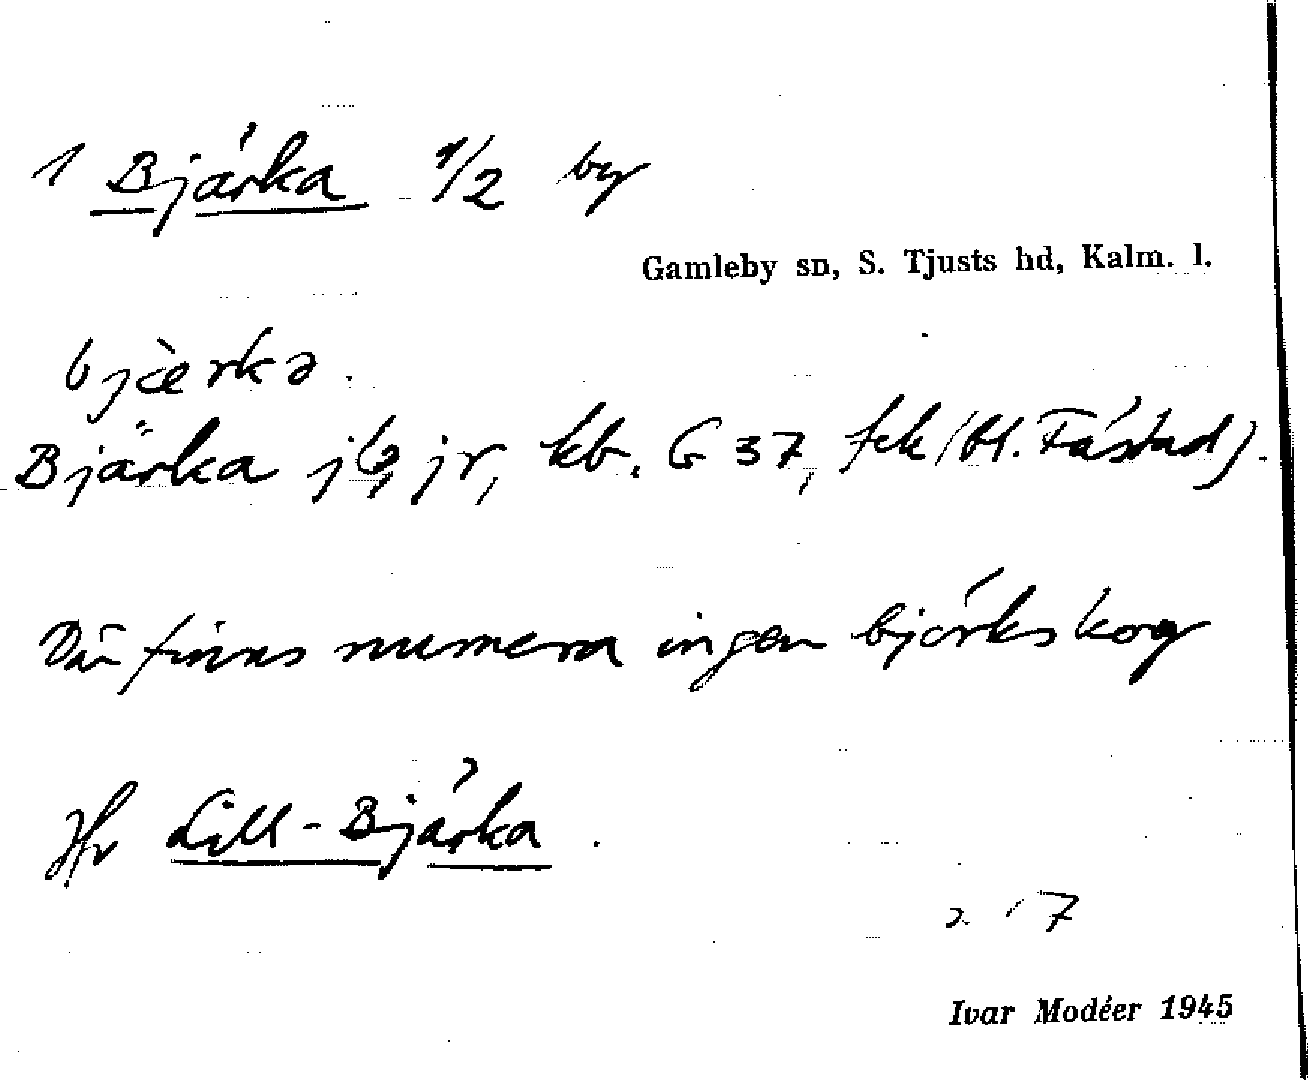 1 Bjärka 1/2 by
Gamleby sn, S. Tjusts hd, Kalm. l.
bjærka.
Bjärka jb, jr, kb. G 37, fck (bl. Fästad).
Där finns numera ingen björkskog
Jfr Lill-Bjärka.
7
Ivar Modéer 1945